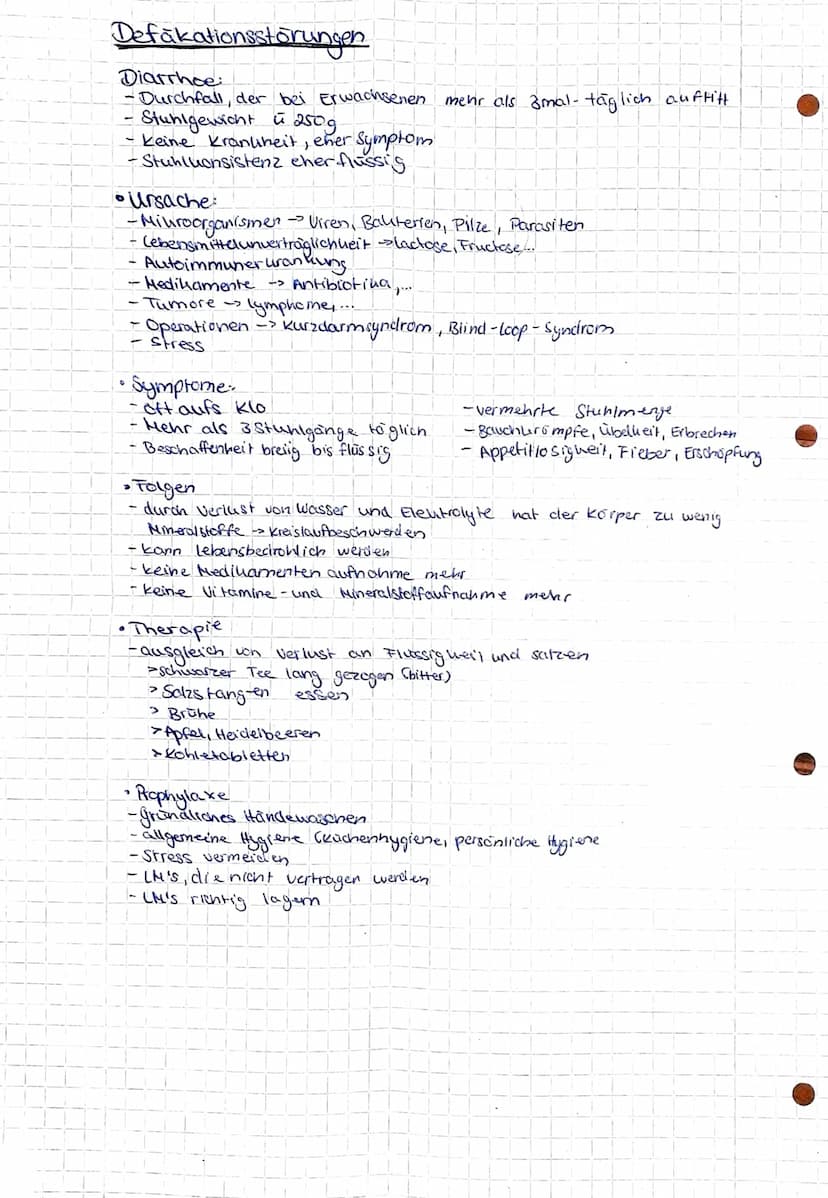 Defäkationsstörungen
Diarrhoe:
- Durchfall, der bei Erwachsenen mehr als 3mal-täglich auftritt
- Stuhlgewicht ü 250g
- keine Krankheit, eher Symptom
- Stuhlkonsistenz eher flüssig
• Ursache:
- Mikroorganismen -> Viren, Bakterien, Pilze, Parasiten
- Lebensmittelunverträglichkeit -> Lactose, Fructose...
- Autoimmunerkrankung
- Medikamente -> Antibiotika,...
- Tumore -> Lymphome,...
- Operationen -> Kurzdarmsyndrom, Blind-Loop-Syndrom
- Stress
• Symptome:
- oft aufs Klo
- Mehr als 3 Stuhlgänge täglich
- Beschaffenheit breiig bis flüssig
- vermehrte Stuhlmenge
- Bauchkrämpfe, Übelkeit, Erbrechen
- Appetitlosigkeit, Fieber, Erschöpfung
• Folgen
- durch Verlust von Wasser und Elektrolyte hat der Körper zu wenig
Mineralstoffe -> Kreislaufbeschwerden
- kann lebensbedrohlich werden
- keine Medikamentenaufnahme mehr
- keine Vitamine- und Mineralstoffaufnahme mehr
• Therapie
- ausgleich von Verlust an Flüssigkeit und salzen
> schwarzer Tee lang gezogen (bitter)
> Salzstangen essen
> Brühe
> Apfel, Heidelbeeren
> Kohletabletten
• Prophylaxe
- gründliches Händewaschen
- allgemeine Hygiene (Küchenhygiene, persönliche Hygiene
- Stress vermeiden
- LM's, die nicht vertragen werden
- LM's richtig lagern